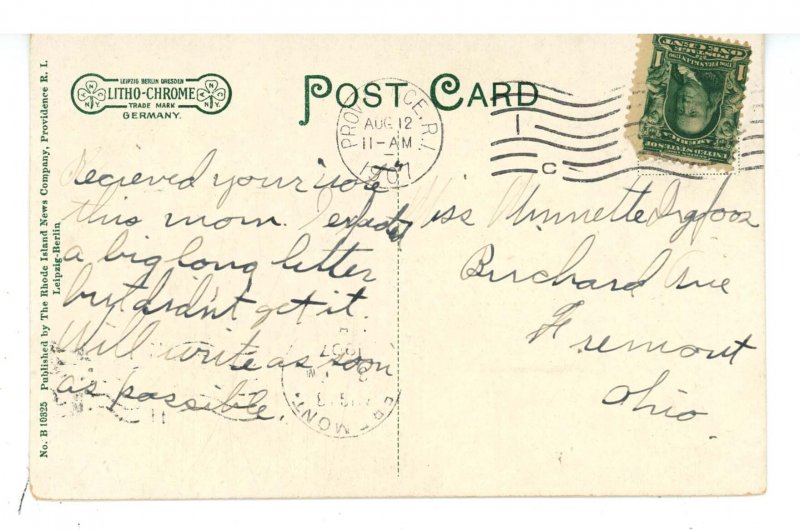 LEIPZIG BERLIN DRESDEN
LITHO-CHROME
TRADE MARK
GERMANY.
POST CARD
PROVIDENCE, R.I.
AUG 12
11-AM
1907
1
C
ONE CENT
UNITED STATES OF
AMERICA
No. B 10325 Published by The Rhode Island News Company, Providence R. I.
Leipzig-Berlin
Recieved your
this morn. I
a big long letter
but didn't get it.
Will write as soon
as possible.
Miss Minnette
Birchard Ave
Fremont
Ohio
1907
MONT